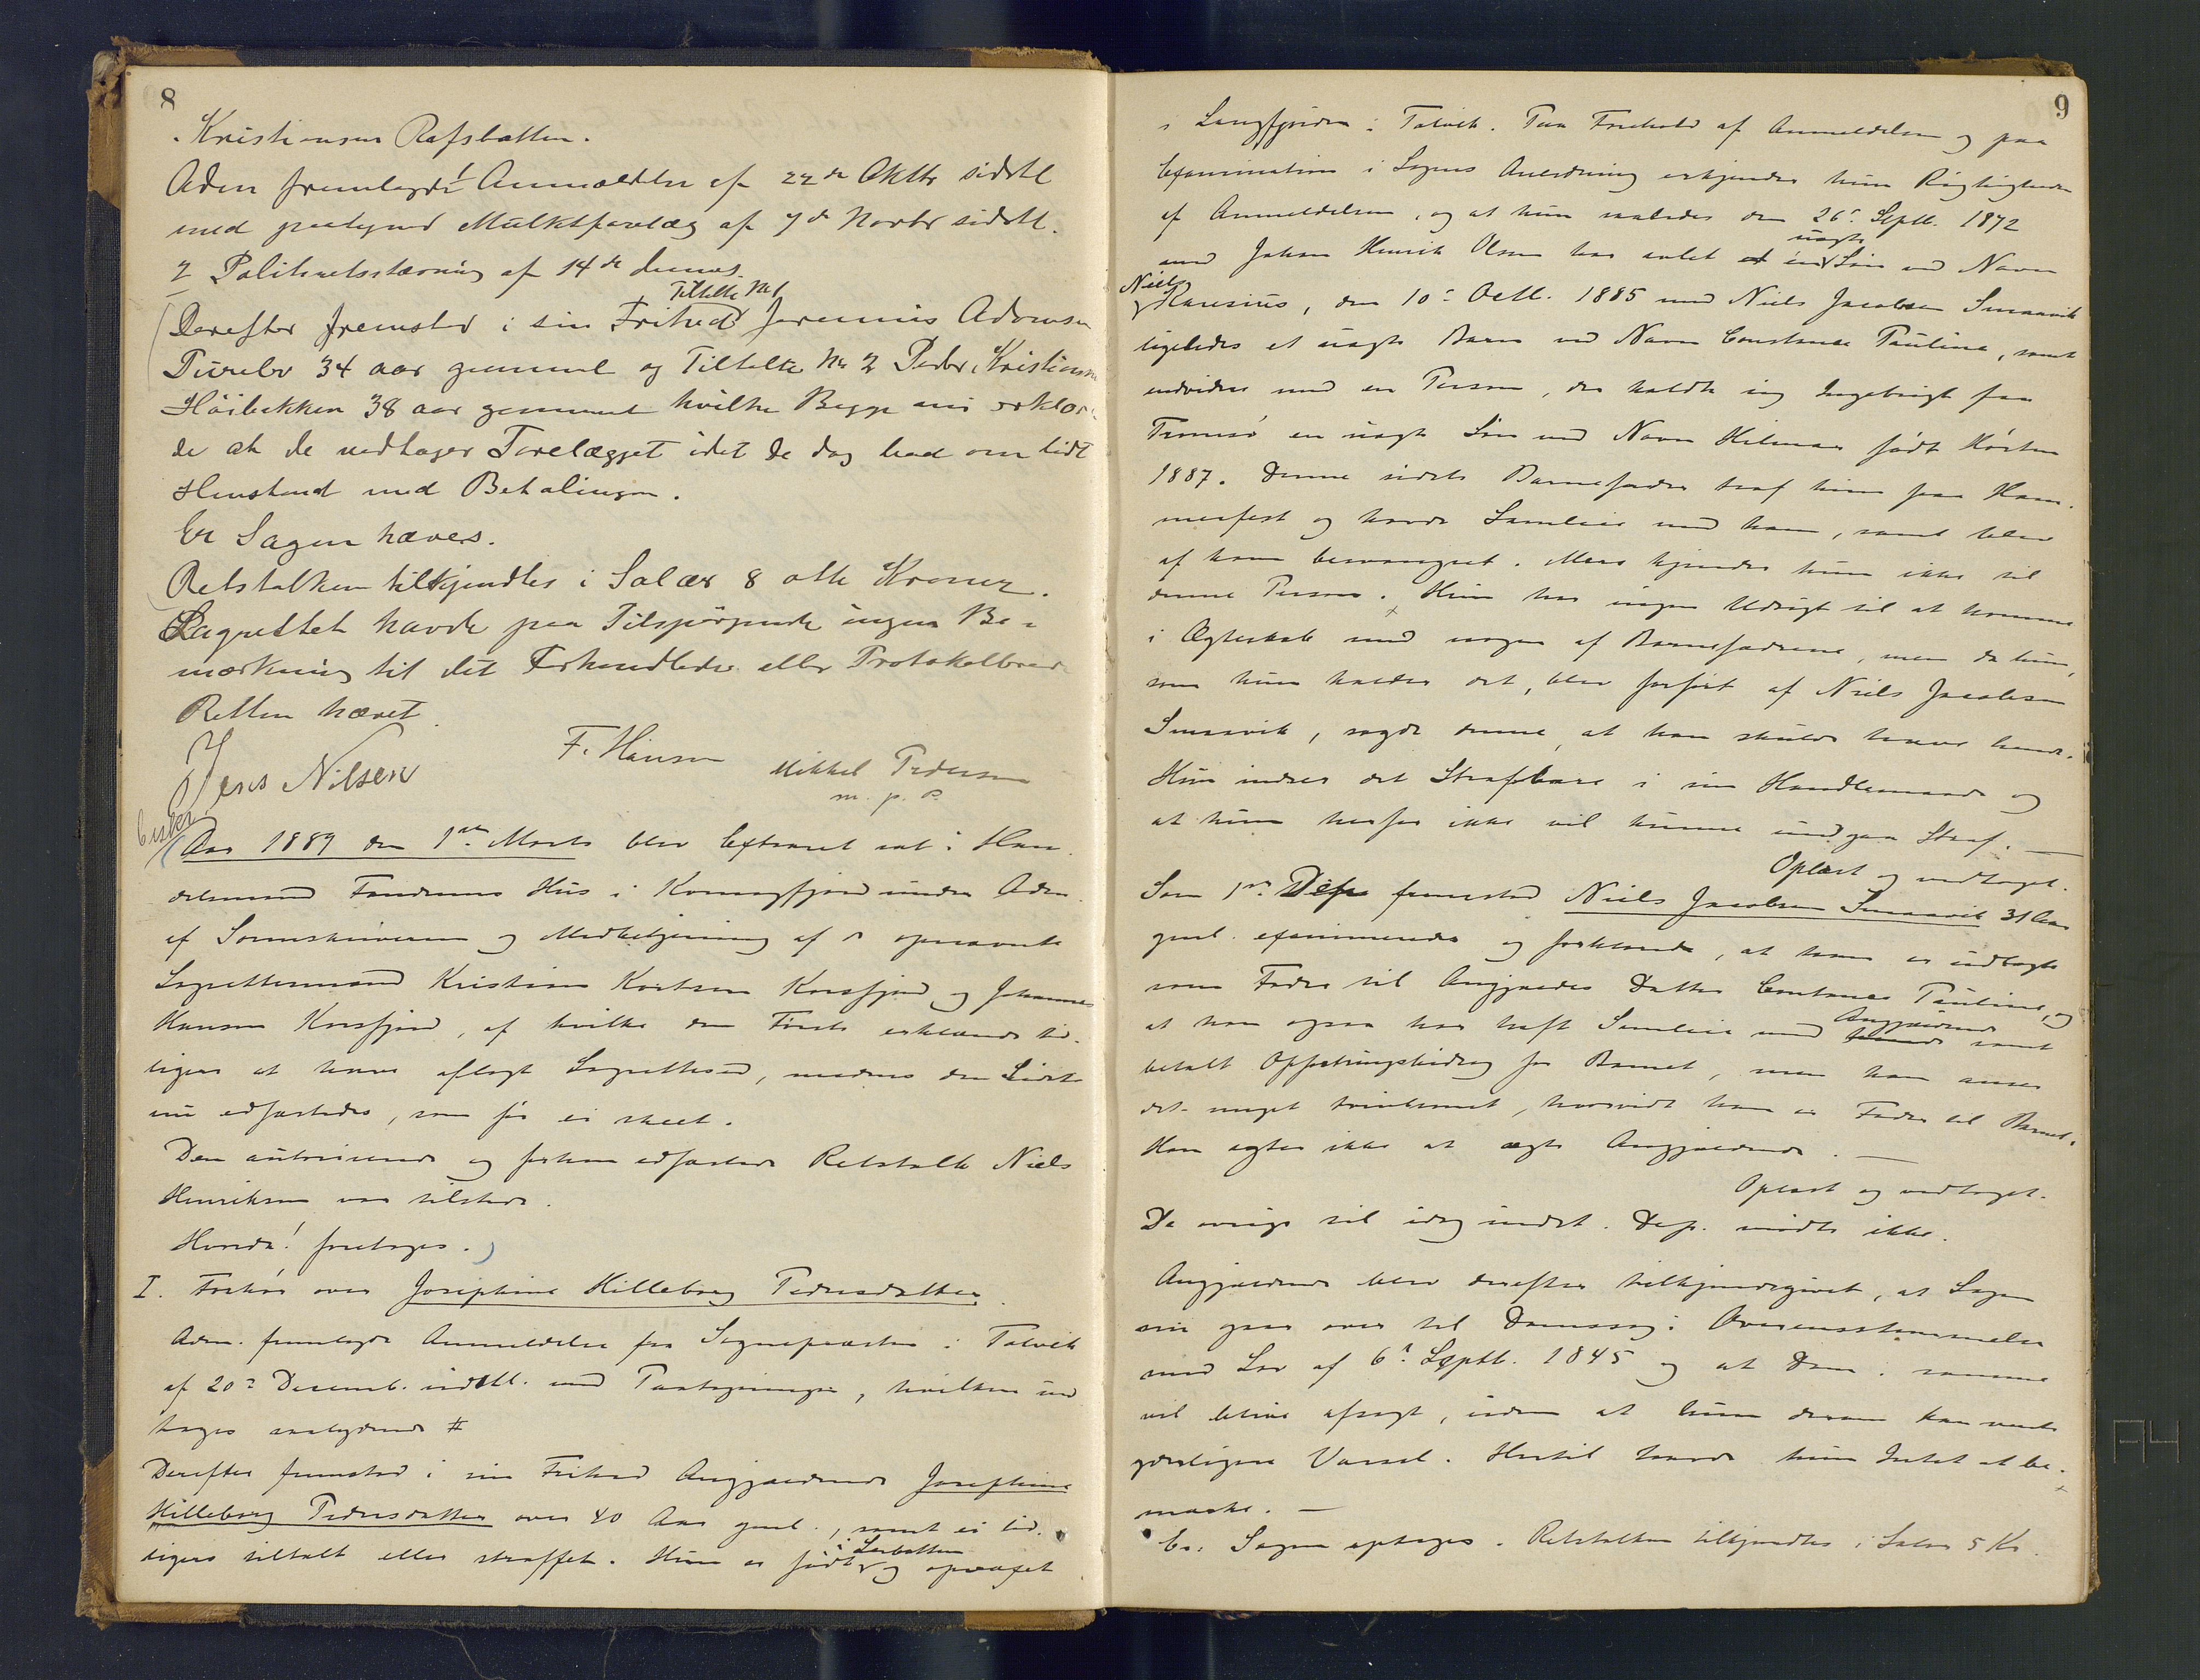 8
Kristiansen Rafsbotten.
Adm fremlagde! Anmeldelse af 22de Oktbr sidstl
med paategnet Mulktforelæg af 7de Novbr sidstl.
2 Politiretsstævning af 14de dennes.
Tiltalte No 1
Derefter fremstod i sin Frihed Jeremias Adamsen
Turelv 34 aar gammel og Tiltalte No 2 Peder Kristiansen
Höibakken 38 aar gammel hvilke Begge nu erklære-
de at de vedtager Forelægget idet de dog bad om lidt
Henstand med Betalingen.
Er Sagen hæves.
Retstolken tilkjendtes i Salær 8 otte Kroner.
Lagrettet havde paa Tilspörgende ingen Be-
mærkning til det Forhandlede eller Protokollered
Retten hævet.
F. Hansen
Jens Nilsen
Mikkel Pedersen
m. p. P.
Aar 1889 den 1ste Marts blev Extraret sat i Han-
delsmand Fandrems Hus i Komagfjord under Adm.
af Sorenskriveren og Medbetjening af de opnævnte
Lagrettemænd Kristian Kortsen Korsfjord og Johannes
Hansen Korsfjord, af hvilke den Förste erklærede tid-
ligere at have aflagt Lagrettesed, medens den Sidste
nu edfæstedes, som för ei skeet.
Den autoriserede og forhen edfæstede Retstolk Niels
Henriksen var tilstede.
Hvorda! foretages.
I. Forhör over Josephine Hilleborg Pedersdatter.
Adm. fremlagde Anmeldelse fra Sognepræsten i Talvik
af 20de Decemb. sidstl. med Paategninger, hvilken ind
tages saalydende #
Derefter fremstod i sin Frihed Angjældende Josephine
Hilleborg Pedersdatter over 40 Aar gml., samt ei tid-
i Lerbotten
ligere tiltalt eller straffet. Hun er födt og opvoxet
9
i Langfjorden i Talvik. Paa Forehold af Anmeldelsen og paa
Examination i Sagens Anledning erkjender hun Rigtigheden
af Anmeldelsen, og at hun saaledes den 26de Septb. 1872
uægte
med Johan Henrik Olsen har avlet et en Sön ved Navn
Niels
Hansius, den 10de Octb. 1885 med Niels Jacobsen Smaavik
ligeledes et uægte Barn ved Navn Constanse Pauline, samt
endvidere med en Person, der kaldte sig Ingebrigt fra
Tromsö en uægte Sön ved Navn Hilmar födt Hösten
1887. Denne sidste Barnefader traf hun paa Ham-
merfest og havde Samleie med ham, samt blev
af ham besvangret. Mere kjender hun ikke til
denne Person. Hun har ingen Udsigt til at komme
i Ægteskab med nogen af Barnefædrene, men da hun,
som hun kalder det, blev forfört af Niels Jacobsen
Smaavik, sagde denne, at han skulde have hende.
Hun indser det Strafbare i sin Handlemaade og
at hun herfor ikke vil kunne undgaa Straf. —
Oplæst og vedtaget.
Som 1ste Dep fremstod Niels Jacobsen Smaavik 31 Aar
gml. examineredes og forklarede, at han er udlagt
som Fader til Angjældendes Datter Constanse Pauline, og
Angjældende
at han ogsaa har haft Samleie med hende samt
betalt Opfostringsbidrag for Barnet, men han anser
det meget tvivlsomt, hvorvidt han er Fader til Barnet.
Han agter ikke at ægte Angjældende. —
Oplæst og vedtaget.
De övrige til idag indst. Dep. mödte ikke.
Angjældende blev derefter tilkjendegivet, at Sagen
nu gaar over til Domssag i Overensstemmelse
med Lov af 6te Septb. 1845 og at Dom i samme
vil blive afsagt, uden at hun derom kan vente
yderligere Varsel. Hertil havde hun Intet at be-
mærke. —
Er: Sagen optages. Retstolken tilkjendtes i Salær 5 Kr.